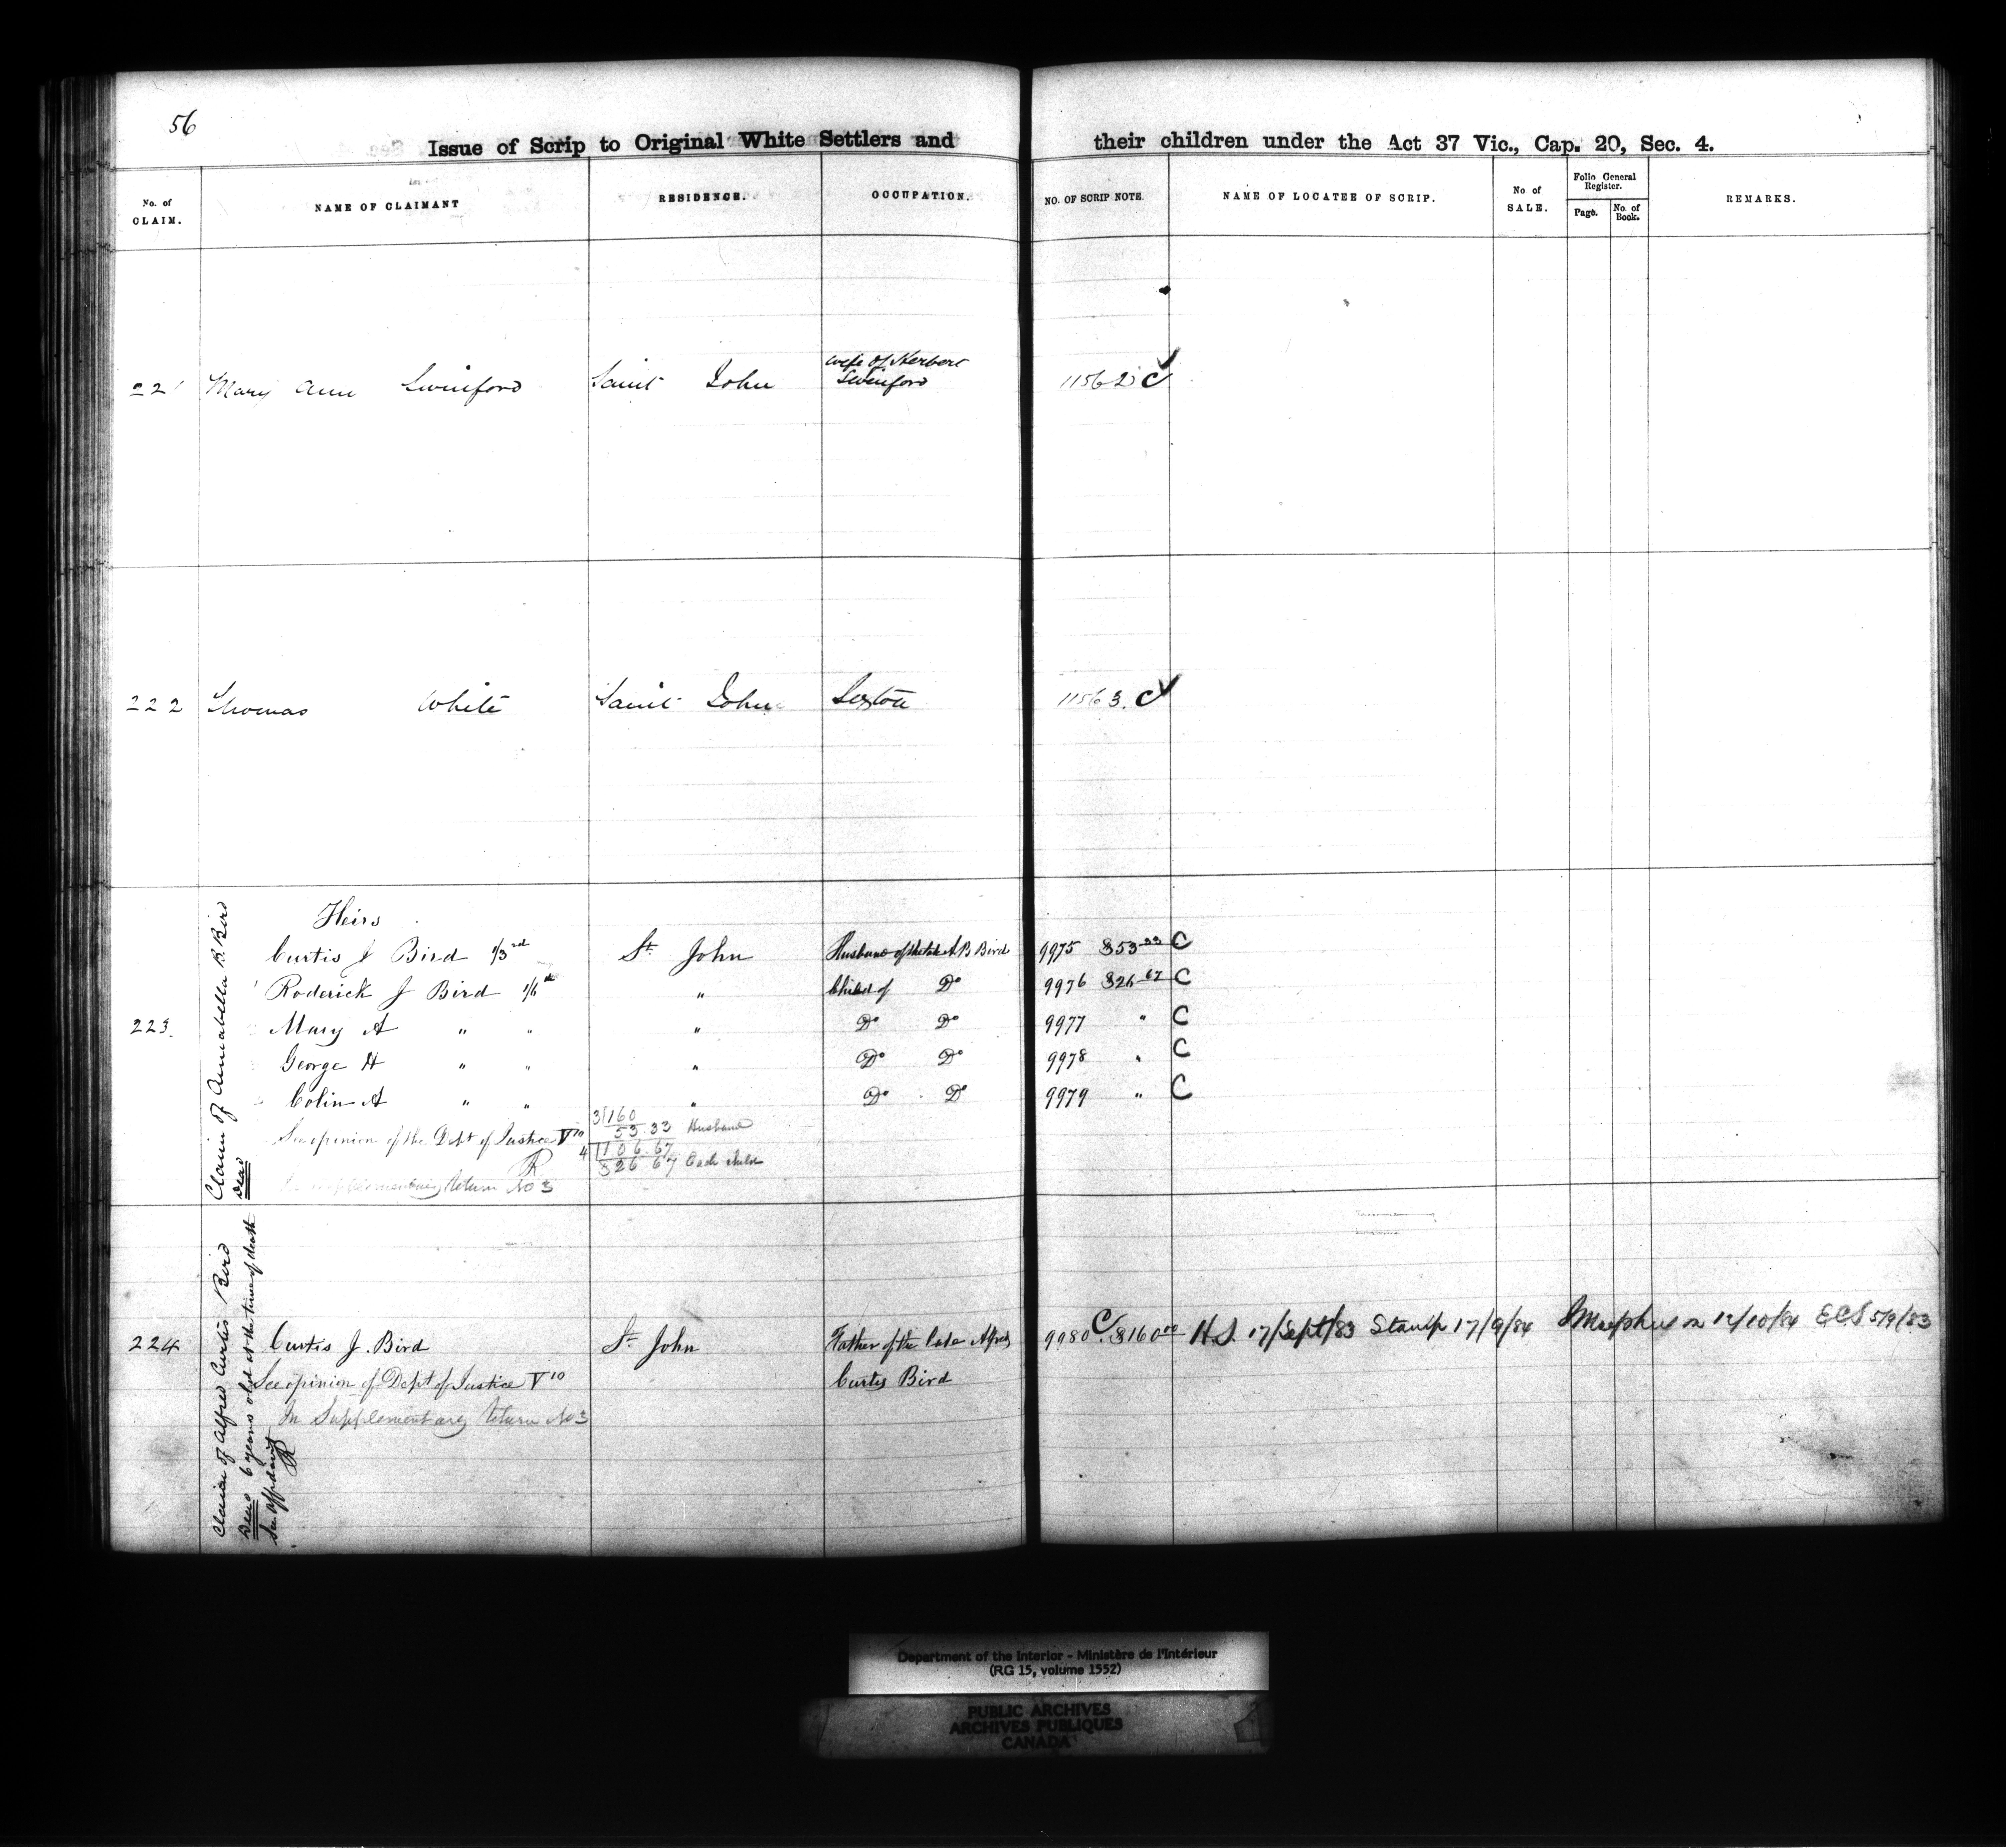 56
Issue of Scrip to Original White Settlers and their children under the Act 37 Vic., Cap. 20, Sec. 4.
No. of CLAIM. NAME OF CLAIMANT RESIDENCE. OCCUPATION. NO. OF SCRIP NOTE. NAME OF LOCATEE OF SCRIP. No of SALE. Folio General Register. Page. No. of Book. REMARKS.
221 Mary Ann Swinford Saint John wife of Herbert Swinford 11562 C
222 Thomas White Saint John Sexton 11563. C
223. Claim of Annabella R. Bird
Dead
Heirs
Curtis J Bird 1/3rd St. John Husband of the late A B Bird 9975 $53.33 C
Roderick J Bird 1/6th " Child of Do 9976 $26.67 C
Mary A " " " Do Do 9977 " C
George H " " " Do Do 9978 " C
Colin A " " " Do Do 9979 " C
3)160
53.33 Husband
See opinion of the Dept of Justice V10
4)106.67
$26.67 Each child
R
Supplementary Return No 3
224 Claim of Alfred Curtis Bird
Dead 6 years old at the time of death
See affidavit
R
Curtis J. Bird St. John Father of the late Alfred Curtis Bird 9980 C $160.00 H.S. 17/Sept/83 Stamp 17/9/84 12/10/84 E.C.S 5/9/83
See opinion of Dept of Justice V10
In Supplementary Return No 3
Department of the Interior - Ministère de l'Intérieur
(RG 15, volume 1552)
PUBLIC ARCHIVES
ARCHIVES PUBLIQUES
CANADA